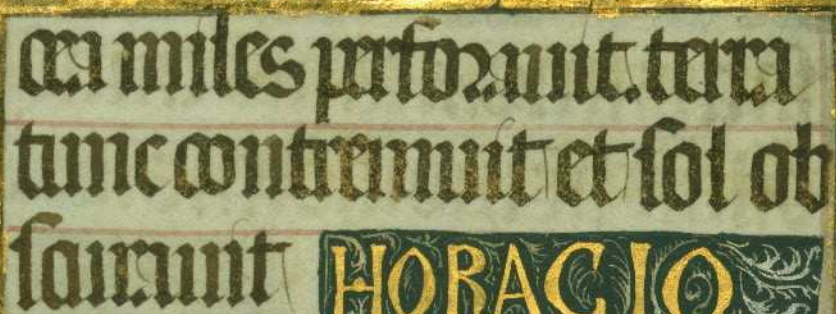 cea miles perforauit. terra
tunc contremuit et sol ob
scurauit HORACIO